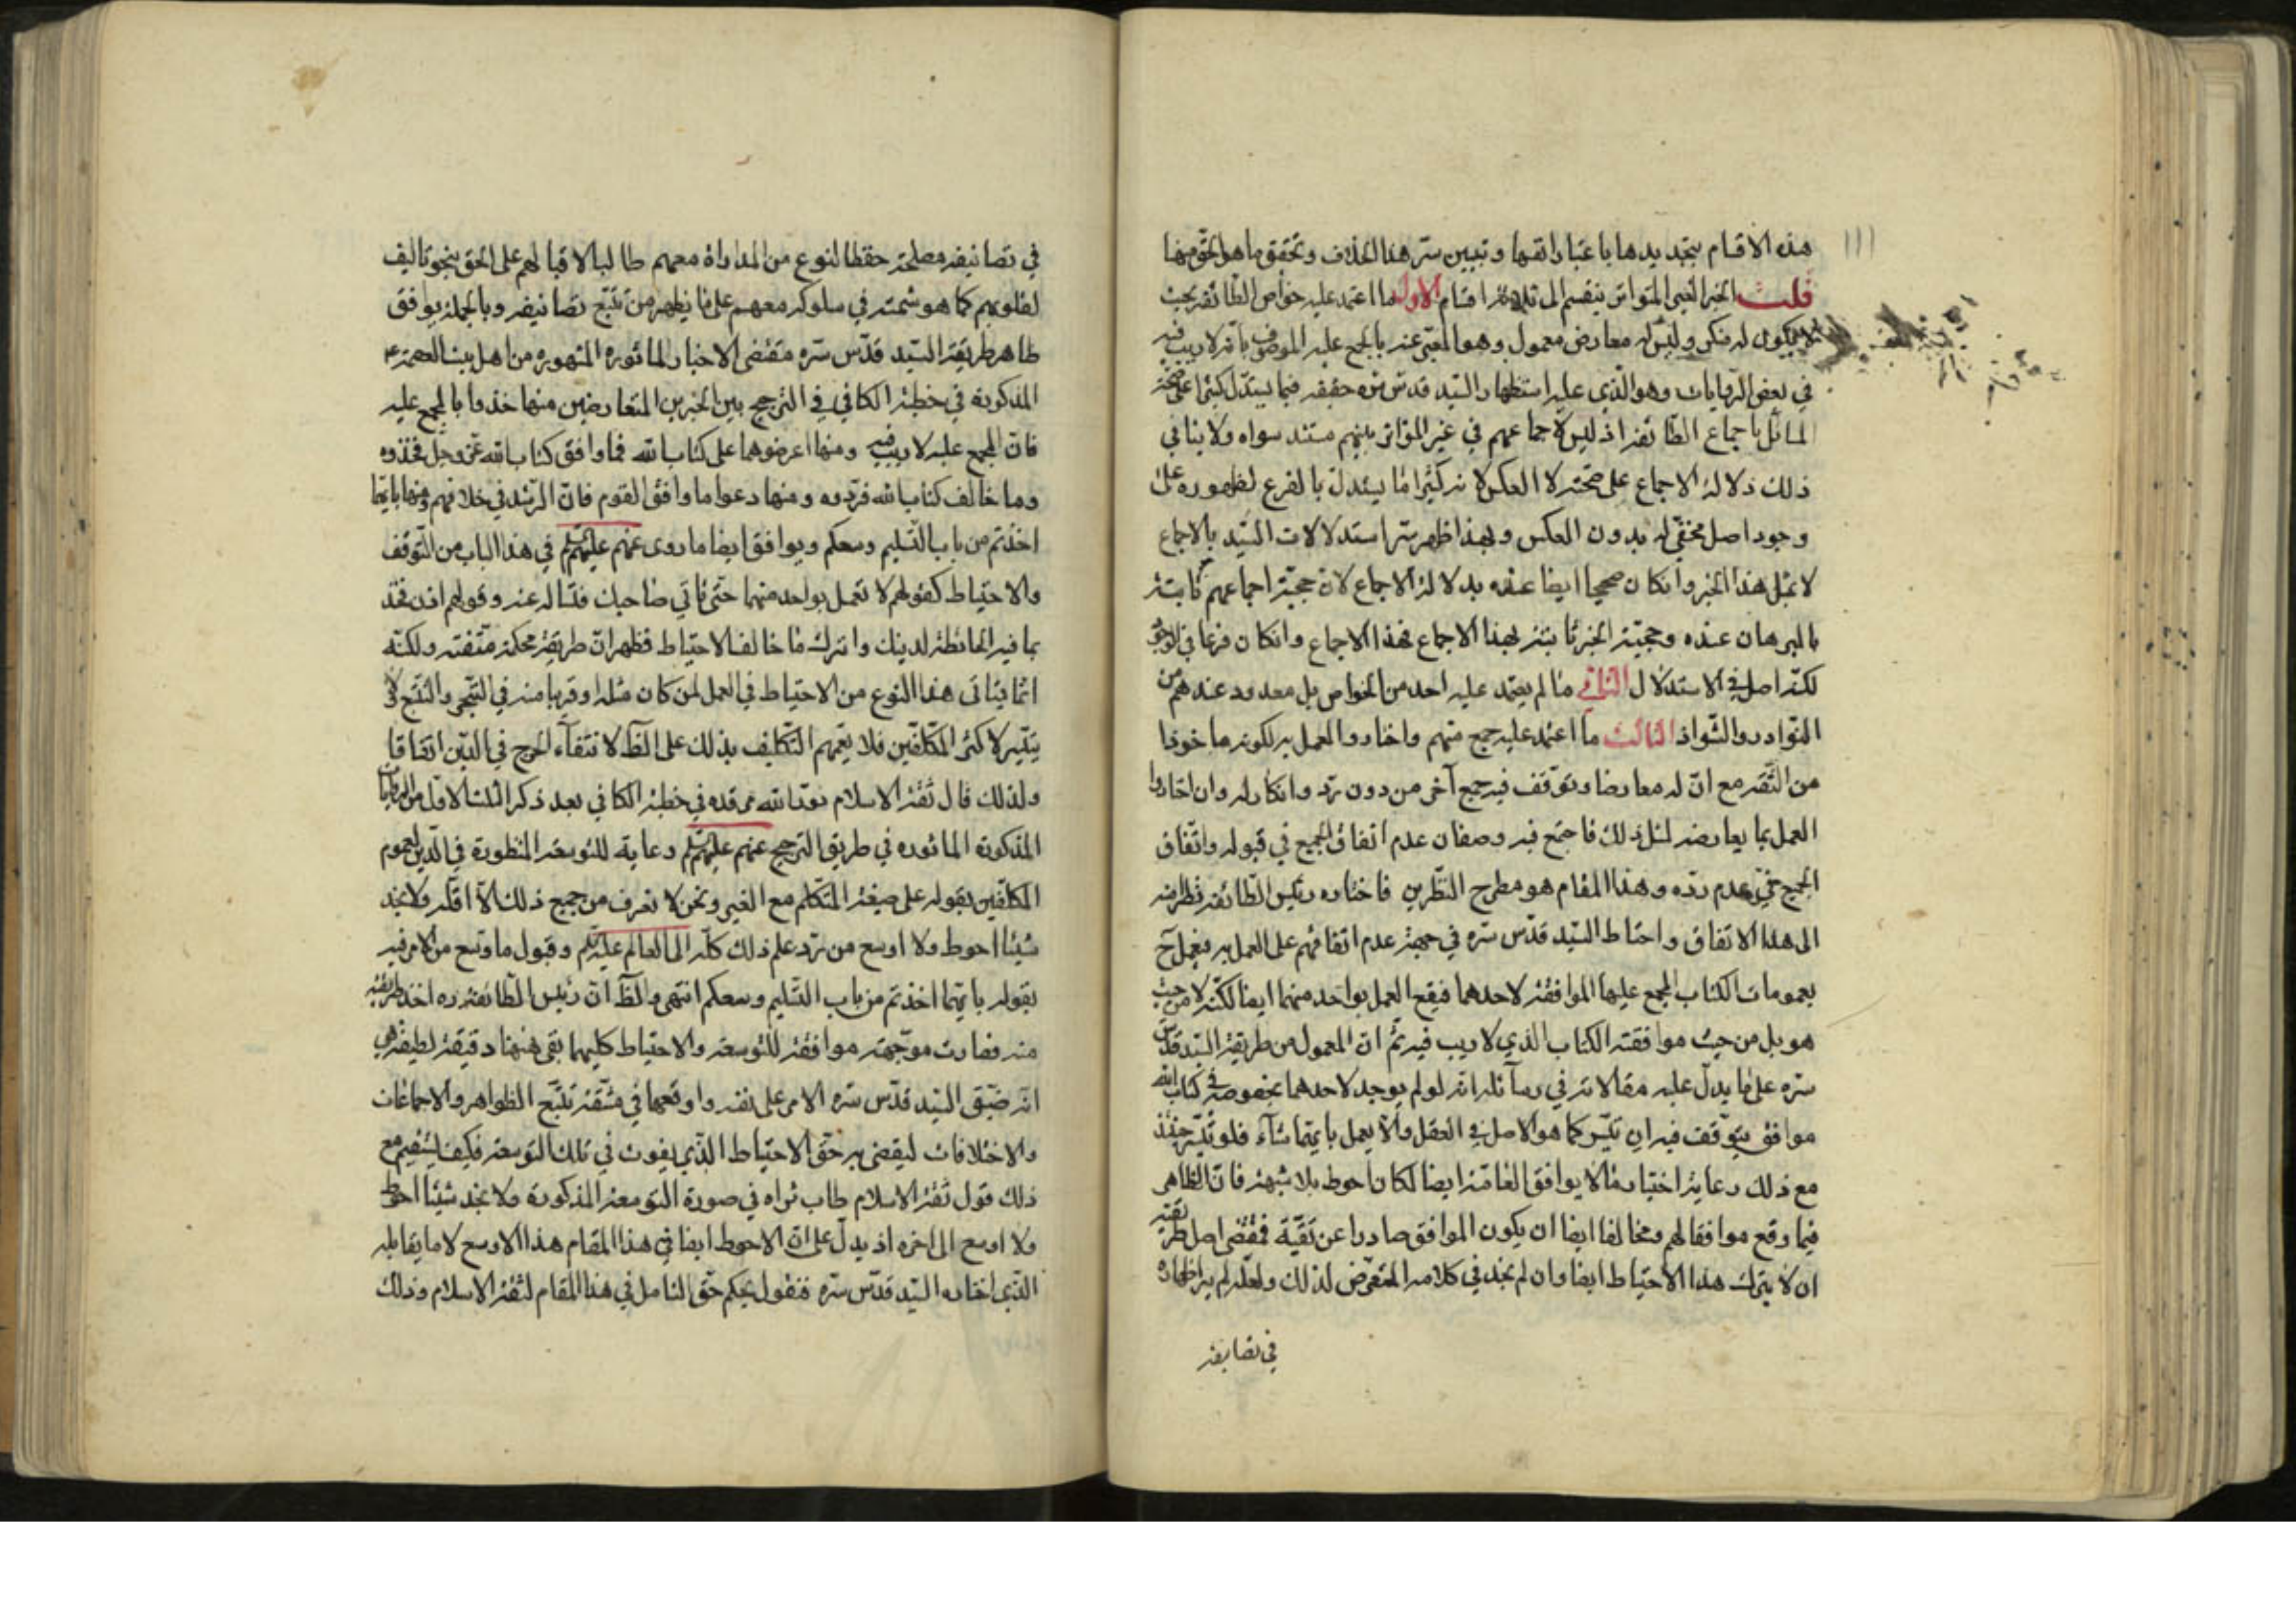 هذه الاقسام بتحديدها باعتباراتها وتبيين سرّ هذا الخلاف وتحقق ما هو الحق منها
قلت الخبر الغير المتواتر ينقسم الى ثلاثة اقسام الاول ما اعتمد عليه خواص الطائفة بحيث
لا يكون له منكر وليس له معارض معمول وهو المعبّر عنه بالمجمع عليه الموصوف بانّه لا ريب فيه
في بعض الروايات وهو الذي عليه استظهار السّيد قدس سره حقيقه فيما يستدل كثيرا على صحّة
المسائل باجماع الطّائفة اذ ليس لاجماعهم في غير المتواتر بينهم مستند سواه ولا ينافي
ذلك دلالة الاجماع على صحته لا العكس لانه كثيرا ما يستدل بالفرع لظهوره على
وجود اصل مخفي له بدون العكس وبهذا ظهر سرّ استدلالات السّيد بالاجماع
لا بمثل هذا الخبر وانكان صحيحا ايضا عنده بدلالة الاجماع لانّ حجيّة اجماعهم ثابتة
بالبرهان عنده وحجيّة الخبر ثابتة بهذا الاجماع فهذا الاجماع وانكان فرعا في الوجود
لكنّه اصل في الاستدلال الثاني ما لم يعتمد عليه احد من الخواص بل معدود عندهم من
النّوادر والشّواذ الثالث ما اعتمد عليه جمع منهم واختاروا العمل به لكونه ماخوذا
من الثّقة مع انّ له معارضا وتوقف فيه جمع آخر من دون ردّ وانكار له وان اختاروا
العمل بما يعارضه لمثل ذلك فاجتمع فيه وصفان عدم اتفاق الجميع في قبوله واتّفاق
الجميع في عدم ردّه وهذا المقام هو مطرح النّظرين فاختاره رئيس الطّائفة نظرا منه
الى هذا الاتفاق واحتاط السّيد قدّس سرّه في جهة عدم اتفاقهم على العمل به فيعمل ح
بعمومات الكتاب المجمع عليها الموافقة لاحدهما فيقع العمل بواحد منهما ايضا لكنّه لا من حيث
هو بل من حيث موافقته الكتاب الذي لا ريب فيه ثمّ انّ المعمول من طريقة السّيد قدّس
سرّه على ما يدلّ عليه مقالاته في رسائله انّه لو لم يوجد لاحدهما بخصوصه في كتاب الله
موافق يتوقف فيه ان تيسّر كما هو الاصل في العقل والّا يعمل بايّهما شاء فلو تيسّر حينئذ
مع ذلك رعاية اختيار ما لا يوافق العامّة ايضا لكان احوط بلا شبهة فانّ الظّاهر
فيما وقع موافقا لهم ومخالفا ايضا ان يكون الموافق صادرا عن تقيّة فمقتضى اصل طريقته
ان لا يترك هذا الاحتياط ايضا وان لم نجد في كلامه التعرّض لذلك ولعلّه لم ير اظهاره
في تصانيفه
في تصانيفه مصلحة حفظا لنوع من المداراة معهم طالبا لاقبالهم على الحق بنحو تاليف
لقلوبهم كما هو شيمته في سلوكه معهم على ما يظهر من تتبّع تصانيفه وبالجملة يوافق
ظاهر طريقة السّيد قدّس سرّه مقتضى الاخبار الماثوره المشهوره من اهل بيت العصمة ع
المذكورة في خطبة الكافي في الترجيح بين الخبرين المتعارضين منها خذوا بالمجمع عليه
فانّ المجمع عليه لا ريب فيه ومنها اعرضوهما على كتاب الله فما وافق كتاب الله عزّ وجلّ فخذوه
وما خالف كتاب الله فردّوه ومنها دعوا ما وافق القوم فانّ الرّشد في خلافهم ومنها بايّهما
اخذتم من باب التّسليم وسعكم ويوافق ايضا ما روى عنهم عليهم السلام في هذا الباب من التّوقف
والاحتياط كقولهم لا تعمل بواحد منهما حتى تاتي صاحبك فتساله عنه وقولهم اذن فخذ
بما فيه الحائطة لدينك واترك ما خالف الاحتياط فظهر انّ طريقته محكمة متقنة ولكنّه
انّما يتاتى هذا النوع من الاحتياط في العمل لمن كان مثله او قريبا منه في التبحّر والتتبّع لا
يتيسّر لاكثر المكلّفين فلا يعمّهم التّكليف بذلك على الظّ لانتفآء الحرج في الدّين اتفاقا
ولذلك قال ثقة الاسلام نوّر الله مرقده في خطبة الكافي بعد ذكر الثلث الاول من الروايات
المذكورة الماثوره في طريق الترجيح عنهم عليهم السلام رعاية للتوسعة المنظورة في الدّين لعموم
المكلّفين بقوله على صيغة المتكلّم مع الغير ونحن لا نعرف من جميع ذلك الّا اقلّه ولا نجد
شيئا احوط ولا اوسع من ردّ علم ذلك كلّه الى العالم عليه السلام وقبول ما وسع من الامر فيه
بقوله بايّهما اخذتم من باب التّسليم وسعكم انتهى والظّ انّ رئيس الطّائفة ره اخذ طريقته
منه فصارت موجّهة موافقة للتوسعة والاحتياط كليهما بقى ههنا دقيقة لطيفة هي
انّه ضيّق السّيد قدّس سرّه الامر على نفسه واوقعها في مشقّة تتبّع الظواهر والاجماعات
والاختلافات ليقضى به حقّ الاحتياط الذّي يفوت في تلك التوسعة فكيف يستقيم مع
ذلك قول ثقة الاسلام طاب ثراه في صورة التوسعة المذكورة ولا نجد شيئا احوط
ولا اوسع الى اخره اذ يدلّ على انّ الاحوط ايضا في هذا المقام هذا الاوسع لا ما يقابله
الذّي اختاره السّيد قدّس سرّه فنقول بحكم حقّ التامل في هذا المقام لثقة الاسلام وذلك